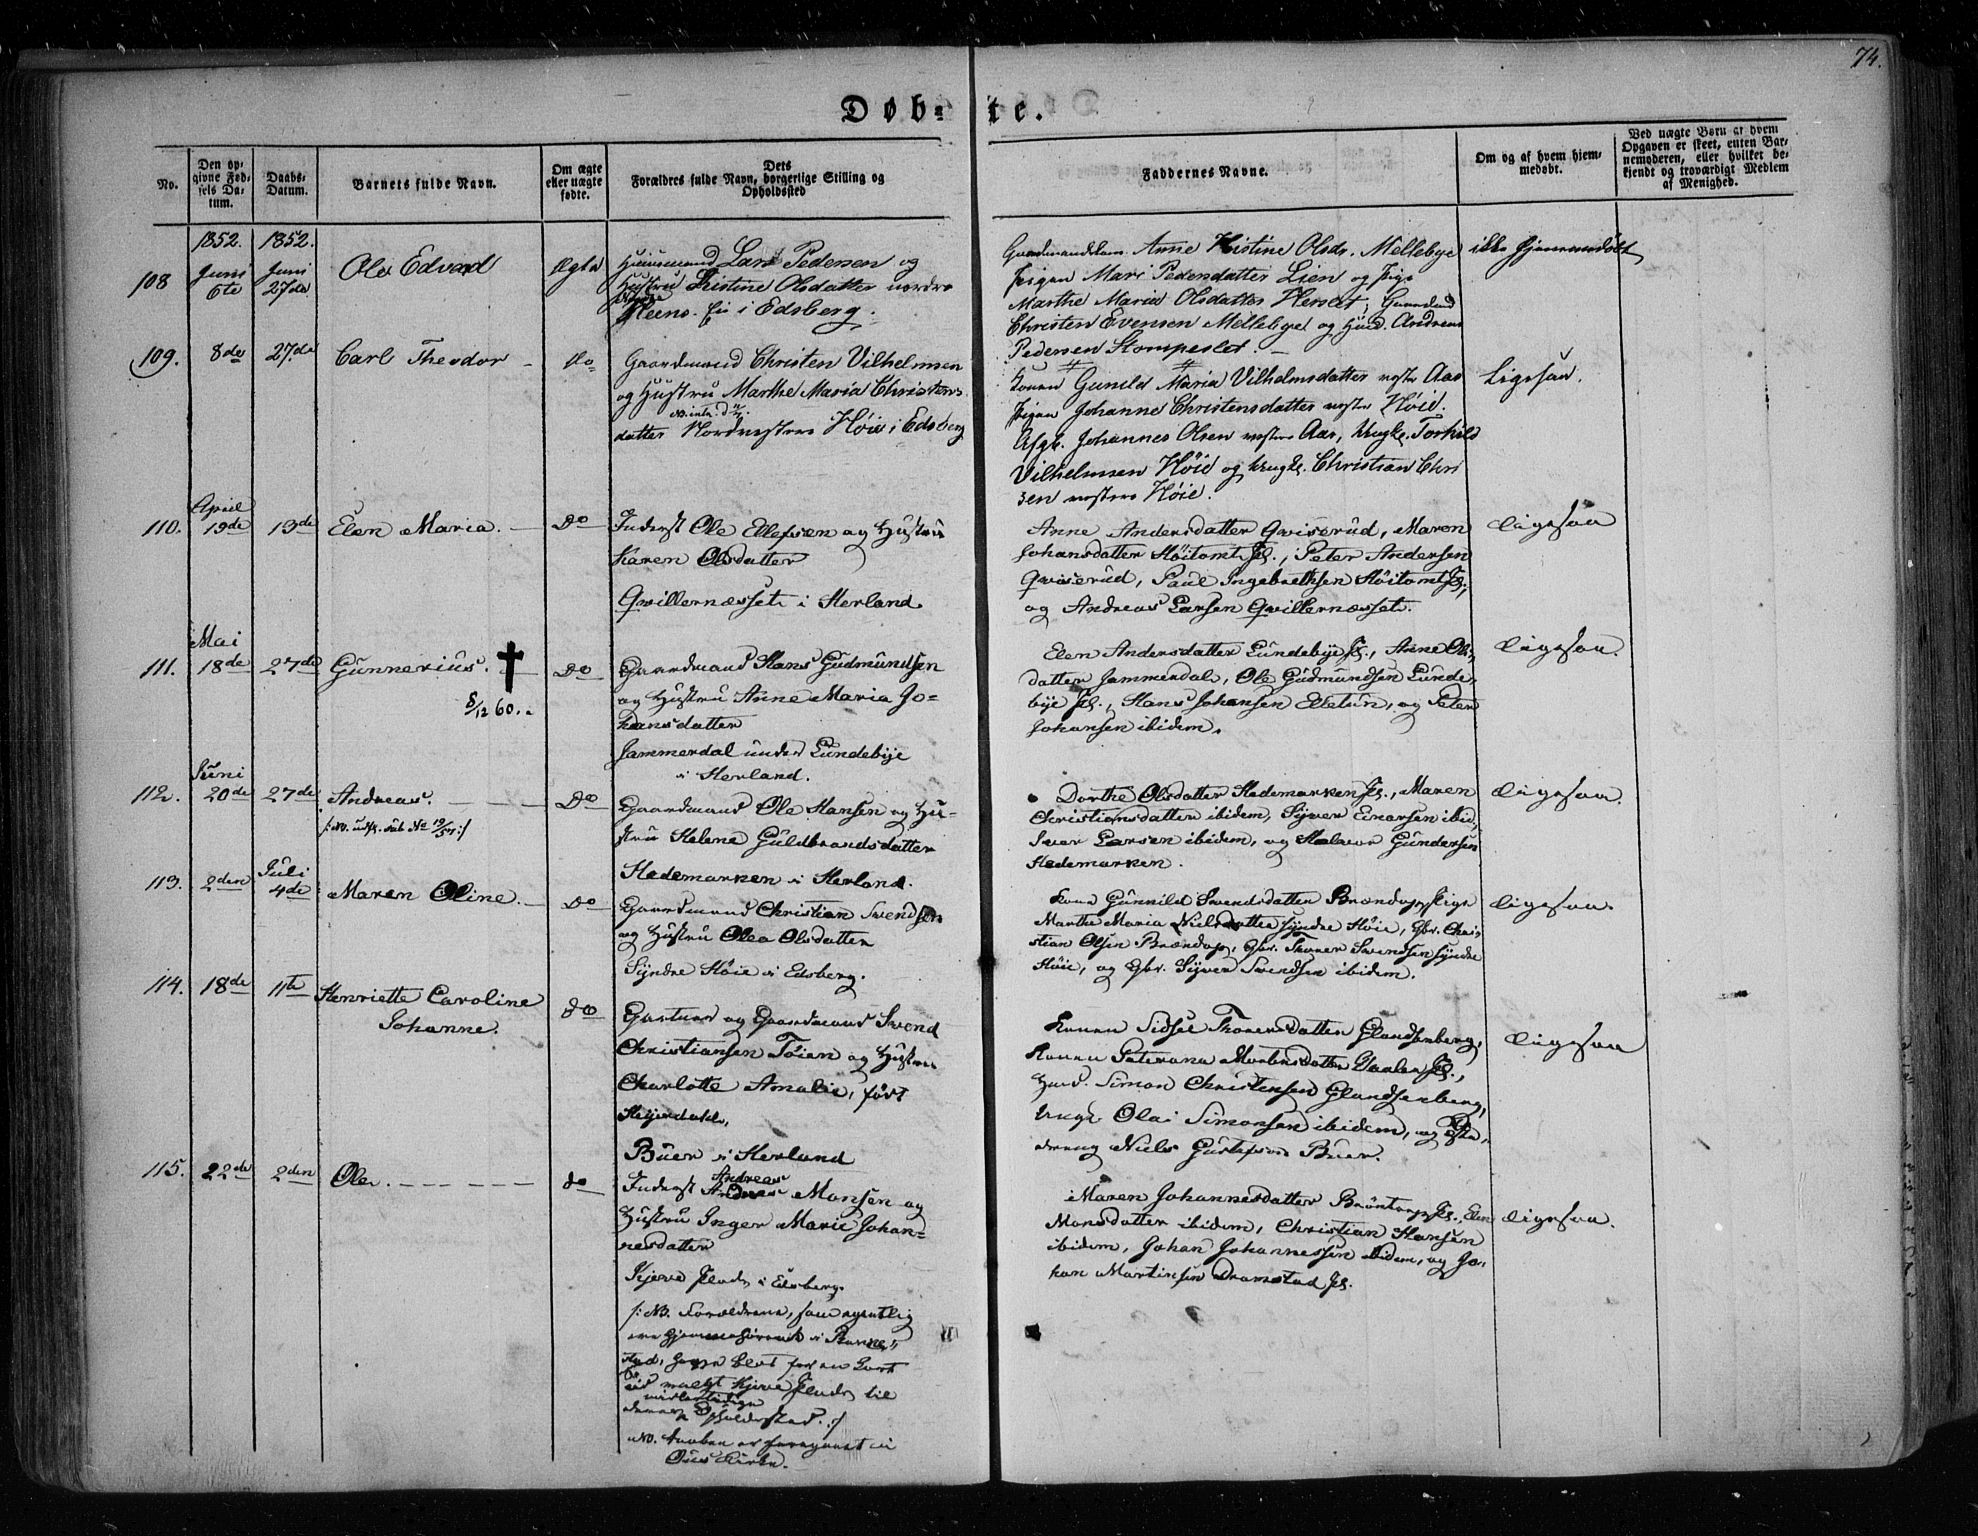 74.
Døb- te.
No.
Den op-
givne Fød-
sels Da-
tum.
Daabs-
Datum.
Barnets fulde Navn.
Om ægte
eller uægte
fødte.
Dets
Forældres fulde Navn, borgerlige Stilling og
Opholdssted
Faddernes Navne.
Om og af hvem hjem-
medøbt.
Ved uægte Børn af hvem
Opgaven er skeet, enten Bar-
nemoderen, eller hvilket be-
kjendt og troværdigt Medlem
af Menighed.
1852. 1852.
108 Juni 6te Juni 27de Ole Edvard Ægte
Huusmand Lars Pedersen og
Hustru Kistine Olsdatter nordre
Heens. Eie i Edsberg.
Anne Kistine Olsdr. Mellebye
Pigen Mari Pedersdatter Lien og Pige
Marthe Maria Olsdatter Herslet,
Christen Evensen Mellebye og Andreas
Pedersen
ikke hjemmedøbt
109. 8de 27de Carl Theodor Do
Gaardmand Christen Vilhelmsen
og Hustru Marthe Maria Christens-
datter Nordvestre Høie i Edsberg
Konen Gunild Maria Vilhelmsdatter vestre Aas
Pigen Johanne Christensdatter vestre Høie.
Johannes Olsen vestre Aas, Ungk. Torkild
Vilhelmsen Høie og Ungk. Christian Chri
sen vestre Høie.
Ligesaa.
April
110. 19de 13de Elen Maria. Do
Inderst Ole Ellefsen og Hustru
Karen Olsdatter
Qvillernæsset i Herland.
Anne Andersdatter Qviserud, Maren
Johansdatter Høitomt Es., Peter Andersen
Qviserud, Paul Ingebrethsen Høitomt Es.,
og Andreas Larsen Qvillernæsset.
Ligesaa
Mai
111. 18de 27de Gunnerius. Do
8/12 60.
Gaardmand Hans Gudmundsen
og Hustru Anne Maria Jo-
hansdatter
Jammerdal under Lundebye
i Herland.
Elen Andersdatter Lundebye Es., Anne Ols-
datter Jammerdal, Ole Gudmundsen Lunde-
bye Es., Hans Johansen Elletun, og Peter
Johansen ibidem.
Ligesaa.
Juni
112. 20de 27de Andreas. Do
Gaardmand Ole Hansen og Hu-
stru Helene Guldbrandsdatter
Hedemarken i Herland.
Dorthe Olsdatter Hedemarken Es., Maren
Christiansdatter ibidem, Syver Einersen ibid.,
Iver Larsen ibidem, og Halvor Gundersen
Hedemarken.
Ligesaa.
Juli
113. 2den 4de Maren Oline. Do
Gaardmand Christian Svendsen
og Hustru Olea Olsdatter
Syndre Høie i Edsberg.
Kone Gunnild Svendsdatter Brændop, Pige
Marthe Maria Nielsdatter Syndre Høie, Gbr. Chri-
stian Olsen Brændop, Gbr. Thorer Svendsen Syndre
Høie, og Gbr. Syver Svendsen ibidem.
Ligesaa.
114. 18de 11te Henriette Caroline
Johanne. do
og Gaardmand Svend
Christiansen Tøien og Hustru
Charlotte Amalie, født
Heyerdahl,
Buer i Herland
Konen Sidsel Thorersdatter Glendsenberg,
Konen Peterana Mortensdatter Es.,
Simon Christensen Glendsenberg,
Ungk. Olai Simonsen ibidem, og
Niels Gustafsen Buer.
Ligesaa
115. 22de 2den Ole. do
Inderst Andreas Monsen og
Hustru Inger Marie Johan-
nesdatter
i Edsberg.
/: NB. Forældrene, som egentlig
ere hjemmehørende i
stad, have blot for en kort
Tid valgt til
midlertidige
Opholdssted. :/
NB. Daaben er foregaaet i
Kirke.
Maren Johannesdatter Brøntorp Es., Elen
Monsdatter ibidem, Christian Hansen
ibidem, Johan Johannessen ibidem, og Jo-
han Martinsen Dramstad Es.
Ligesaa.